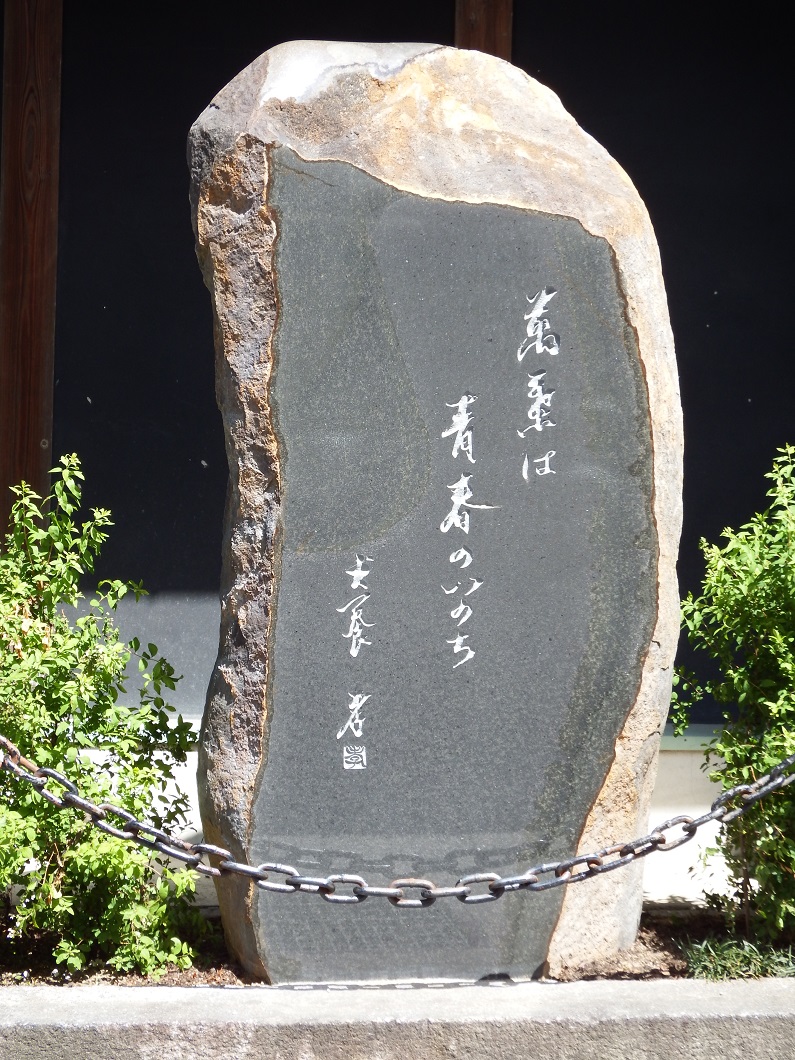 萬葉は
青春のいのち
犬養 孝
孝